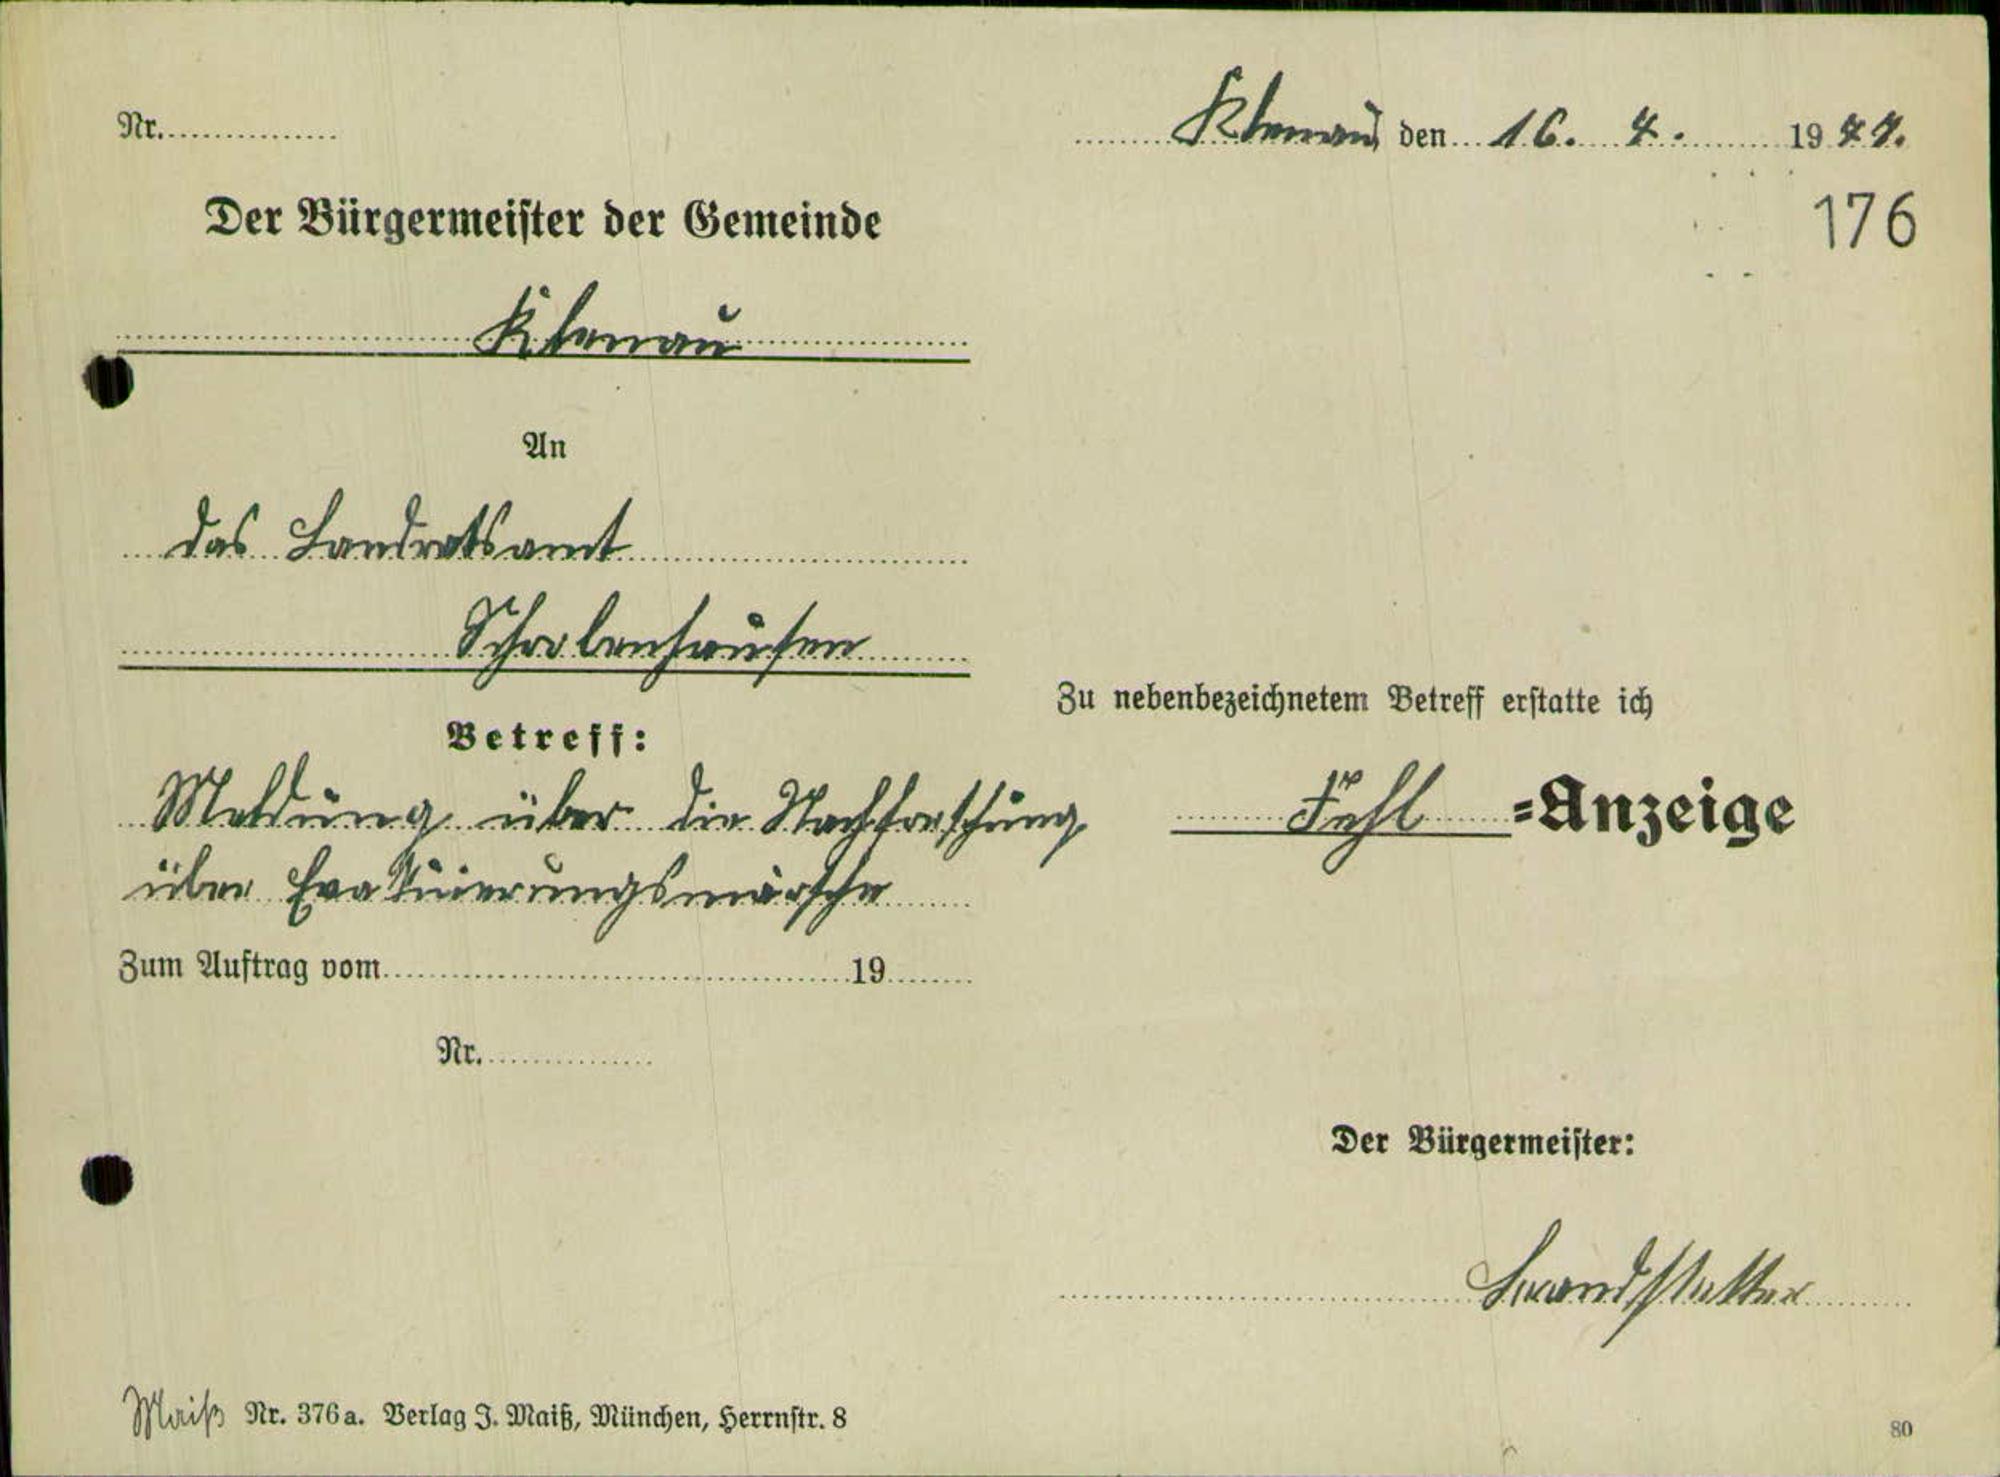 Nr.
Klenau, den 16. 4. 1947.
176
Der Bürgermeister der Gemeinde
Klenau
An
das Landratsamt
Schrobenhausen
Betreff:
Meldung über die Nachforschung
über Evakuierungsmärsche
Zum Auftrag vom 19
Nr.
Zu nebenbezeichnetem Betreff erstatte ich
Fehl-Anzeige
Der Bürgermeister:
Maiß Nr. 376a. Verlag J. Maiß, München, Herrnstr. 8
80